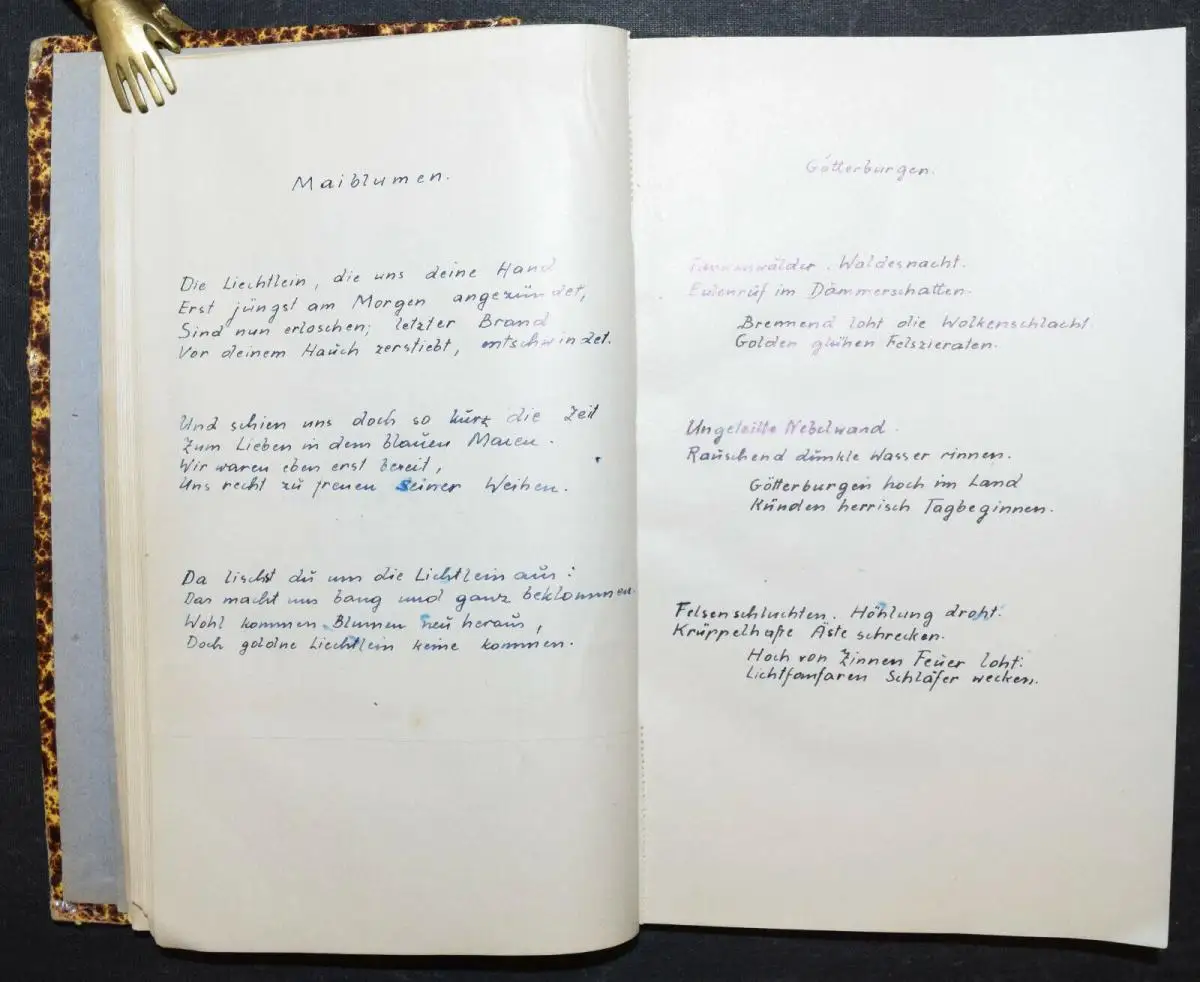 Maiblumen.
Die Liechtlein, die uns deine Hand
Erst jüngst am Morgen angezündet,
Sind nun erloschen; letzter Brand
Vor deinem Hauch zerstiebt, entschwindet.
Und schien uns doch so kurz die Zeit
Zum Lieben in dem blauen Maien.
Wir waren eben erst bereit,
Uns recht zu freuen seiner Weihen.
Da lischst du uns die Lichtlein aus:
Das macht uns bang und ganz beklommen.
Wohl kommen Blumen neu heraus,
Doch goldne Liechtlein keine kommen.
Götterburgen.
Tannenwälder. Waldesnacht.
Eulenruf im Dämmerschatten.
Brennend loht die Wolkenschlacht.
Golden glühen Felszieraten.
Ungeteilte Nebelwand.
Rauschend dunkle Wasser rinnen.
Götterburgen hoch im Land
Künden herrisch Tagbeginnen.
Felsenschluchten. Höhlung droht.
Krüppelhafte Äste schrecken.
Hoch von Zinnen Feuer loht:
Lichtfanfaren Schläfer wecken.